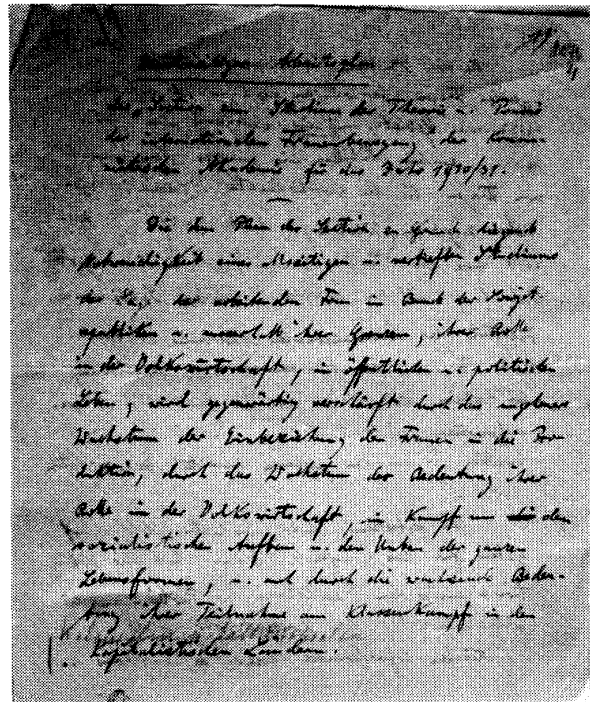 Arbeitsplan
der Sektion zum Studium der Theorie u. Praxis
der internationalen Frauenbewegung der Kommu-
nistischen Akademie für das Jahr 1930/31.
Die dem Plan der Sektion zu Grunde liegende
Notwendigkeit eines allseitigen u. vertieften Studiums
der Lage der arbeitenden Frau im Bunde der Sowjet-
republiken u. ausserhalb ihrer Grenzen, ihrer Rolle
in der Volkswirtschaft, im öffentlichen u. politischen
Leben, wird gegenwärtig verschärft durch das
Wachstum der Einbeziehung der Frauen in die Pro-
duktion, durch das Wachstum der Bedeutung ihrer
Rolle in der Volkswirtschaft, im Kampf um den
sozialistischen Aufbau u. den der ganzen
Lebensformen, u. durch die wachsende Bedeu-
tung ihrer Teilnahme am Klassenkampf in den
Kapitalistischen Ländern.